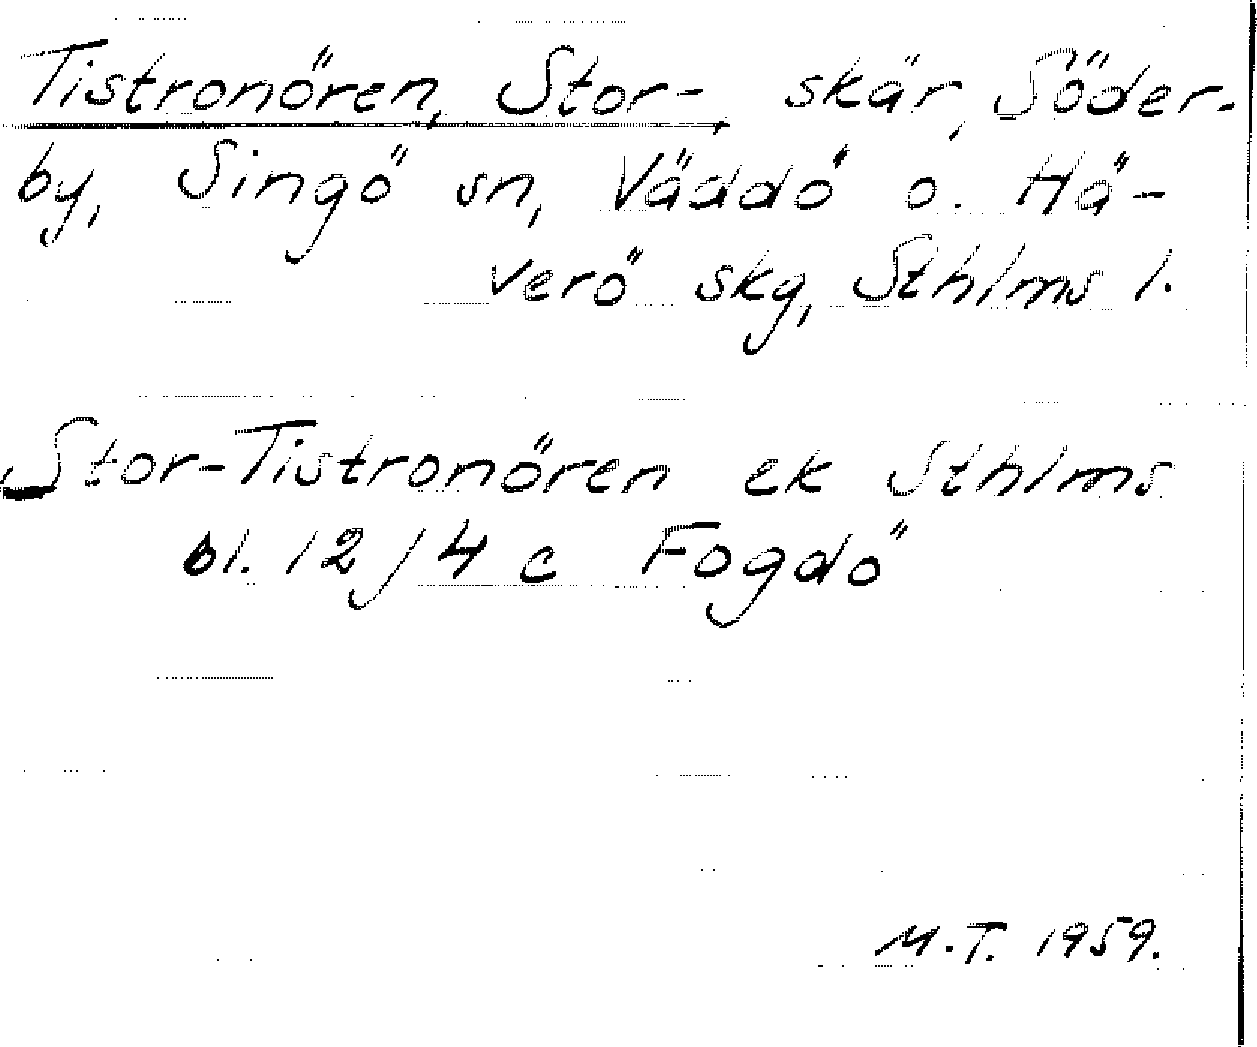 Tistronören, Stor-, skär, Söder-
by, Singö sn, Väddö o. Hä-
verö skg, Sthlms l.
Stor-Tistronören ek Sthlms
bl. 12/4 c Fogdö
M.T. 1959.